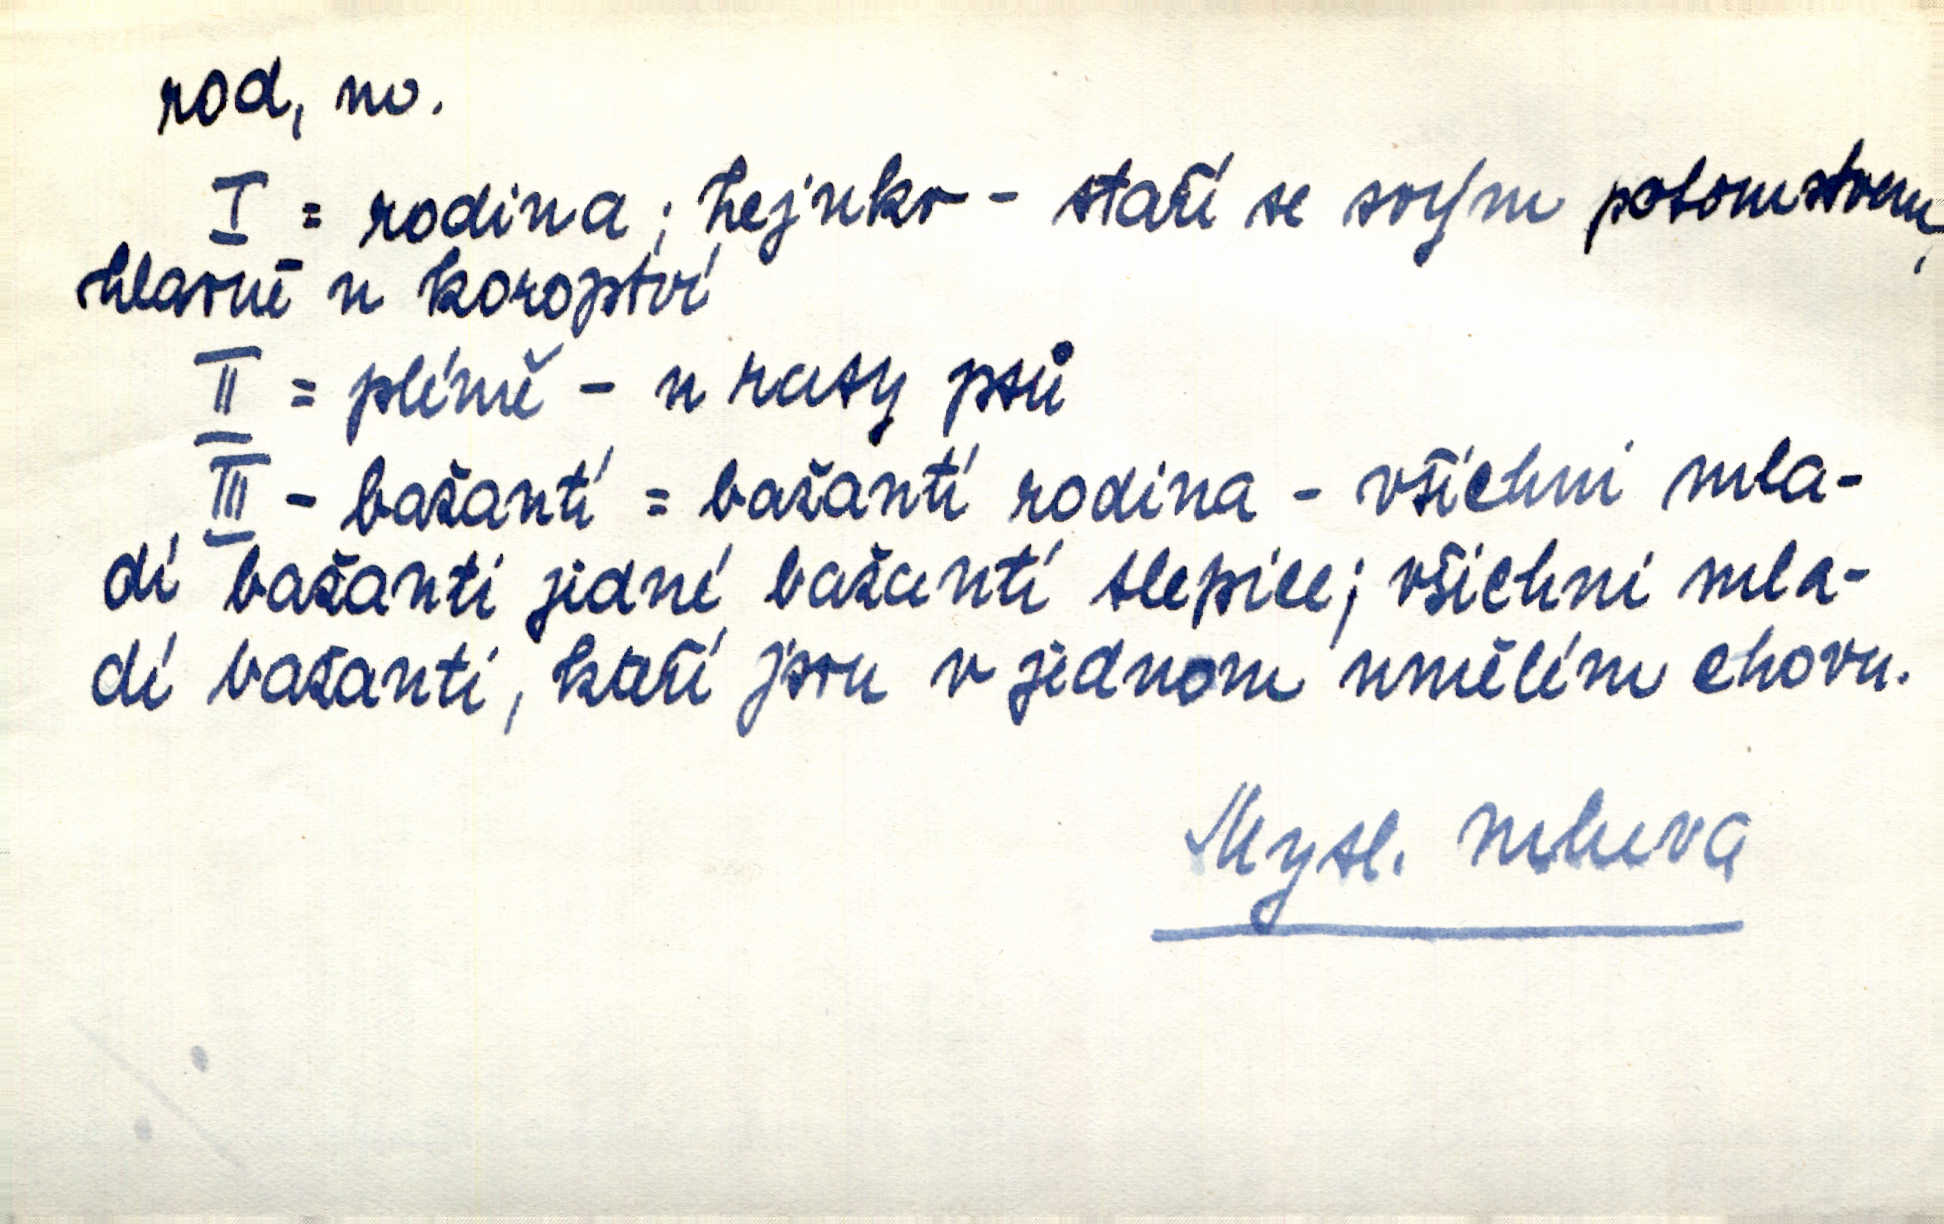 rod, m.
I = rodina; hejnko - staří se svým potomstvem,
hlavně u koroptví
II = plémě - u rasy psů
III - bažantí = bažantí rodina - všichni mla-
dí bažanti jedné bažantí slepice; všichni mla-
dí bažanti, kteří jsou v jednom umělém chovu.
Mysl. mluva